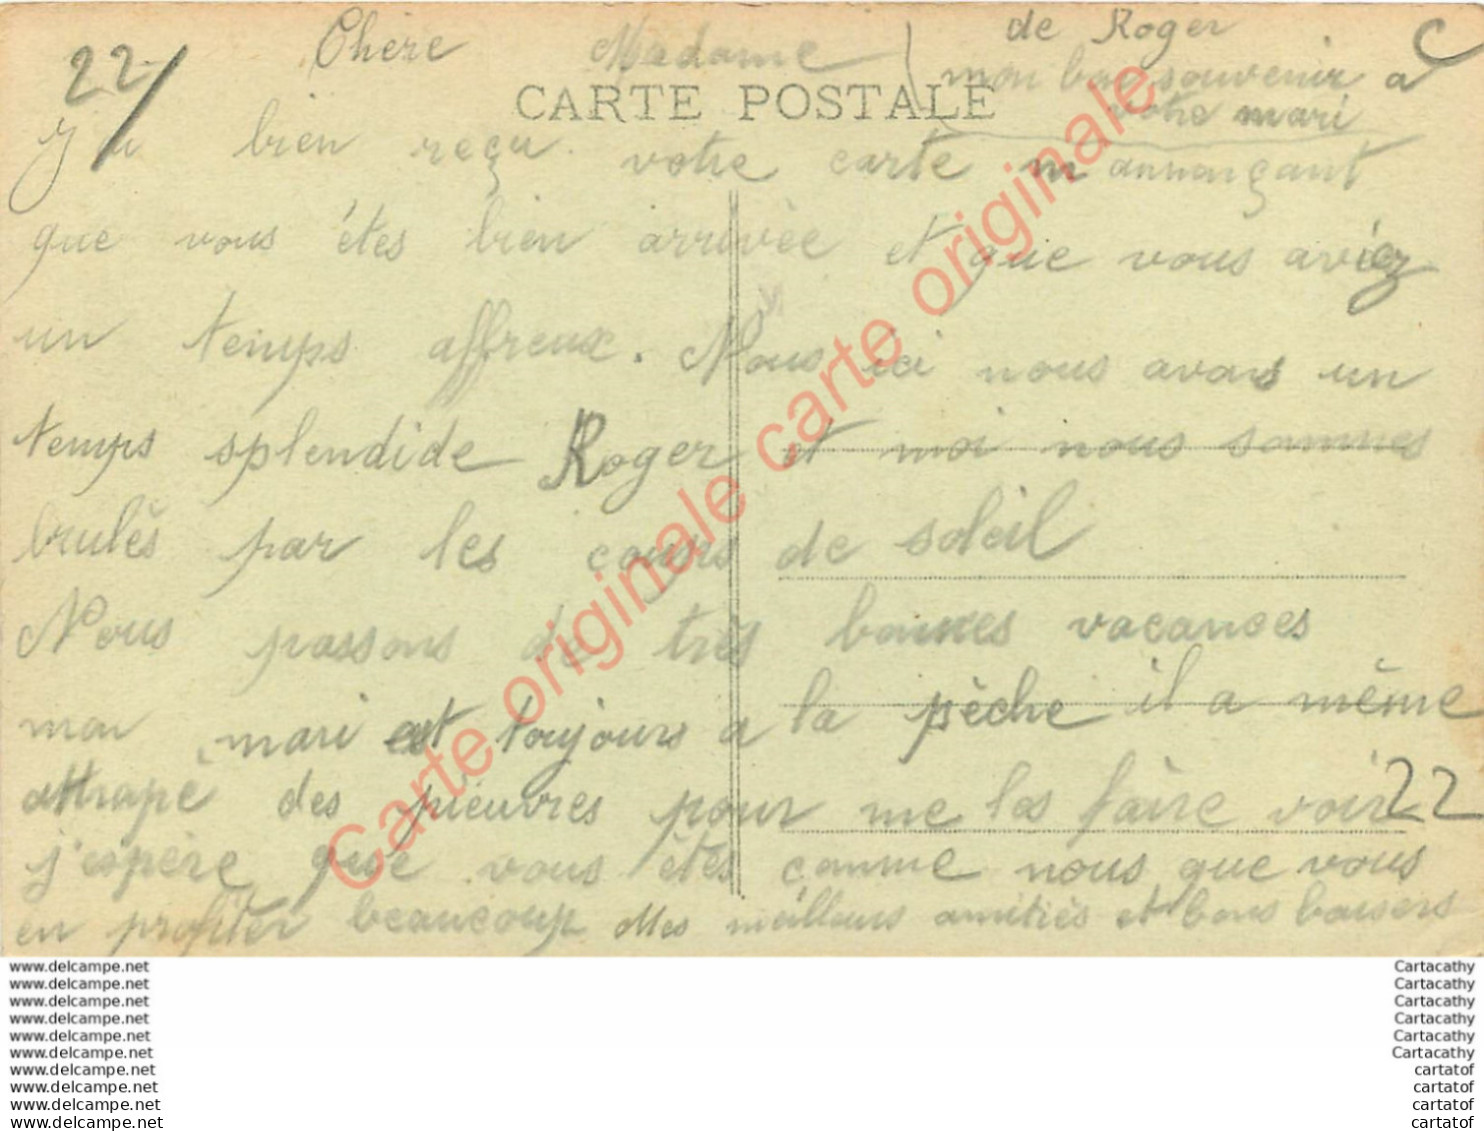 22/
Chère Madame
de Roger
C
mon bon souvenir a
votre mari
CARTE POSTALE
J'ai bien reçu votre carte m annonçant
que vous êtes bien arrivée et que vous aviez
un temps affreux. Nous ici nous avons un
temps splendide Roger et moi nous sommes
brulés par les coups de soleil
Nous passons de très bonnes vacances
mon mari est toujours a la pêche il a même
attrapé des pieuvres pour me les faire voir
22
j'espère que vous êtes comme nous que vous
en profiter beaucoup Mes meilleurs amitiés et bons baisers
Carte originale carte originale carte originale
www.delcampe.net
www.delcampe.net
www.delcampe.net
www.delcampe.net
www.delcampe.net
www.delcampe.net
www.delcampe.net
www.delcampe.net
www.delcampe.net
www.delcampe.net
Cartacathy
Cartacathy
Cartacathy
Cartacathy
Cartacathy
Cartacathy
cartatof
cartatof
cartatof
cartatof